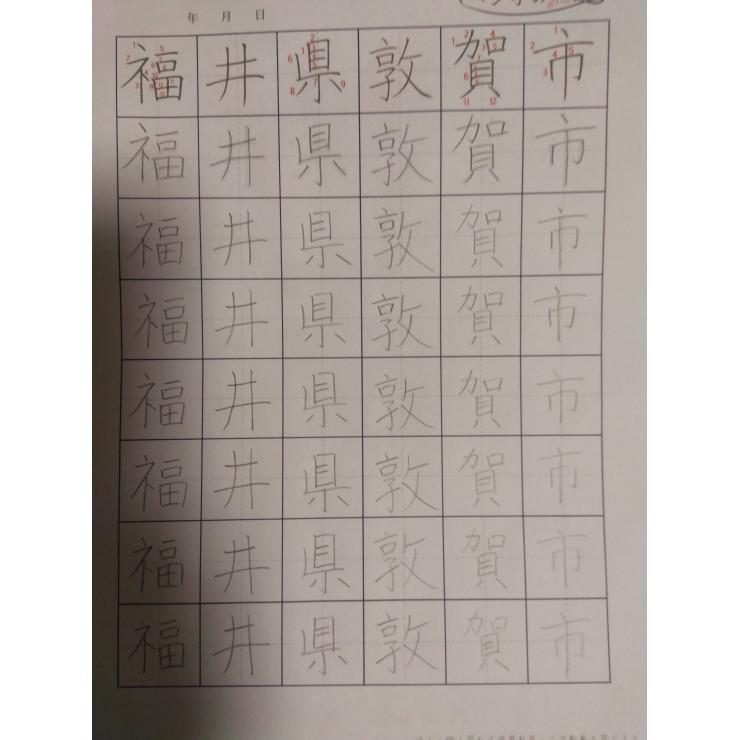 年 月 日
福井県敦賀市
福井県敦賀市
福井県敦賀市
福井県敦賀市
福井県敦賀市
福井県敦賀市
福井県敦賀市
福井県敦賀市